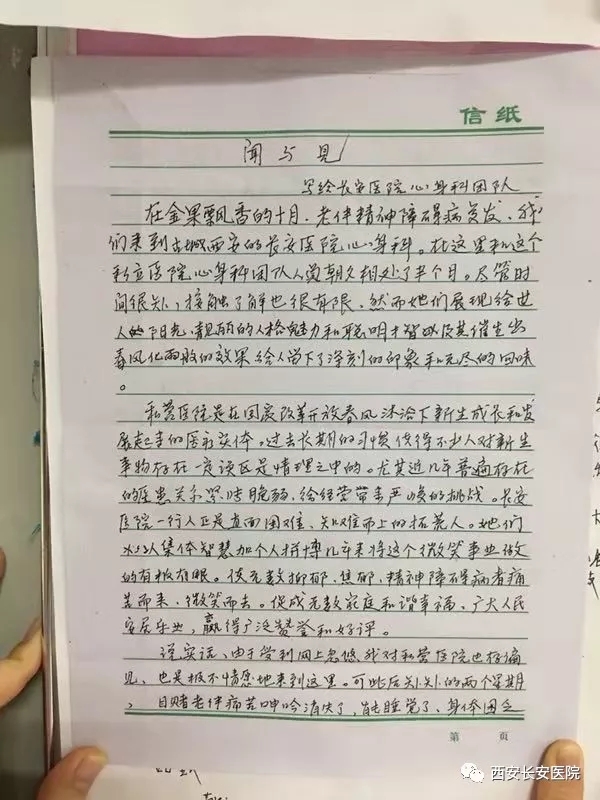 信纸
闻与见
写给长安医院心身科团队
在金果飘香的十月，老伴精神障碍病复发，我
们来到古城西安的长安医院心身科。在这里和这个
私立医院心身科团队人员朝夕相处了半个月。尽管时
间很短，接触了解也很有限，然而她们展现给世
人的阳光，靓丽的人格魅力和聪明才智以及其催生出
春风化雨般的效果给人留下了深刻的印象和无尽的回味
。
私营医院是在国家改革开放春风沐浴下新生成长和发
展起来的医疗实体。过去长期的习惯使得不少人对新生
事物存在一定误区是情理之中的。尤其近几年普遍存在
的医患关系紧张脆弱，给经营带来严峻的挑战。长安
医院一行人正是直面困难、知难而上的拓荒人。她们
以集体智慧加个人拼博几年来将这个微笑事业做
的有板有眼。使无数抑郁、焦郁、精神障碍病者痛
苦而来，微笑而去。促成无数家庭和谐幸福，广大人民
安居乐业，赢得广泛赞誉和好评。
说实话，由于受到网上忽悠我对私营医院也存偏
见，也是极不情愿地来到这里。可此后短短的两个星期
，目睹老伴痛苦呻吟消失了，能睡觉了、身体困乏
第 页
西安长安医院